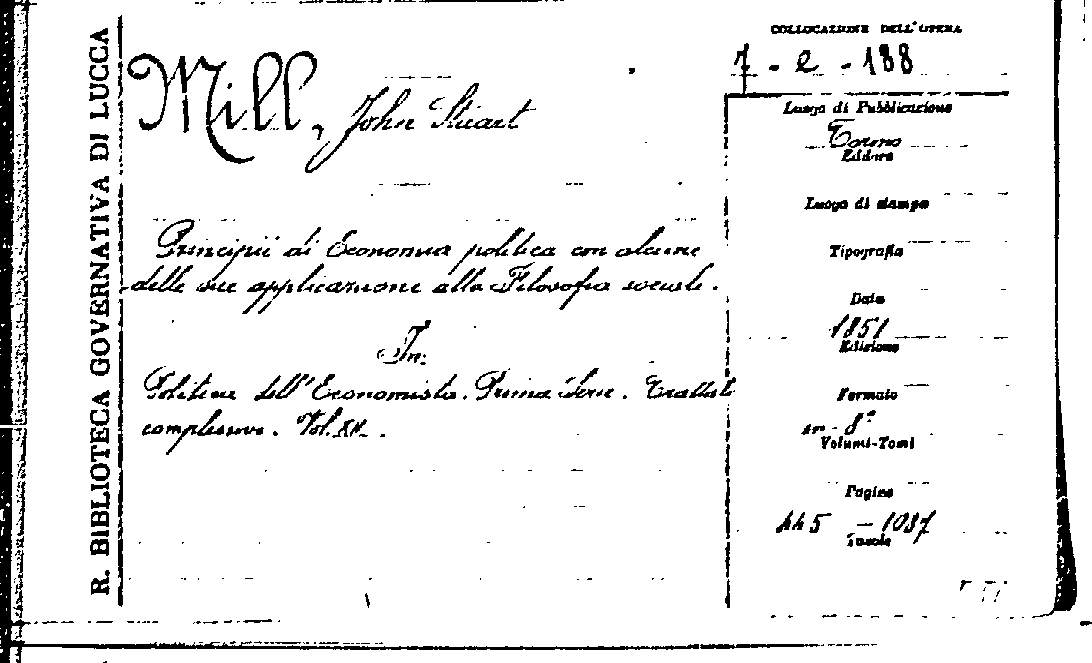 R. BIBLIOTECA GOVERNATIVA DI LUCCA
COLLOCAZIONE DELL'OPERA
7 - e - 188
Mill, John Stuart
Luogo di Pubblicazione
Torino
Editore
Luogo di stampa
Principii di Economia politica con alcune
delle sue applicazione alla Filosofia sociale.
Tipografia
Data
1851
Edizione
In:
dell'Economista. Prima Serie. Trattati
complessivi. Vol. XII.
Formato
in - 8°
Volumi-Tomi
Pagine
445 - 1037
Tavole